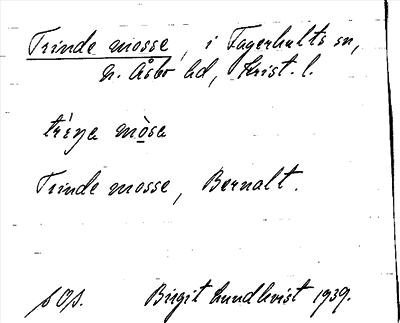 Trinde mosse, i Fagerhults sn,
N. Åsbo hd, Krist. l.
mòsa
Trinde mosse, Bernalt.
Birgit Lundkvist 1939.